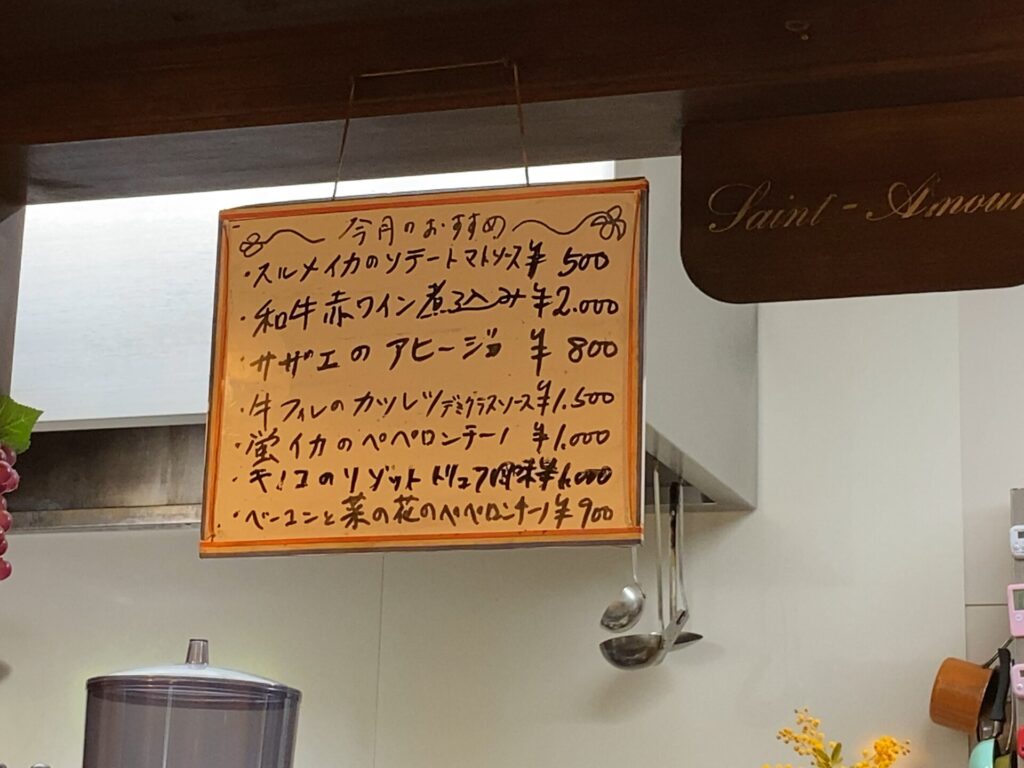 今月のおすすめ
・スルメイカのソテートマトソース¥500
・和牛赤ワイン煮込み¥2.000
・サザエのアヒージョ ¥800
・牛フィレのカツレツデミグラスソース¥1.500
・蛍イカのペペロンチーノ ¥1.000
・キノコのリゾットトリュフ風味¥1.000
・ベーコンと菜の花のペペロンチーノ¥900
Saint-Amour